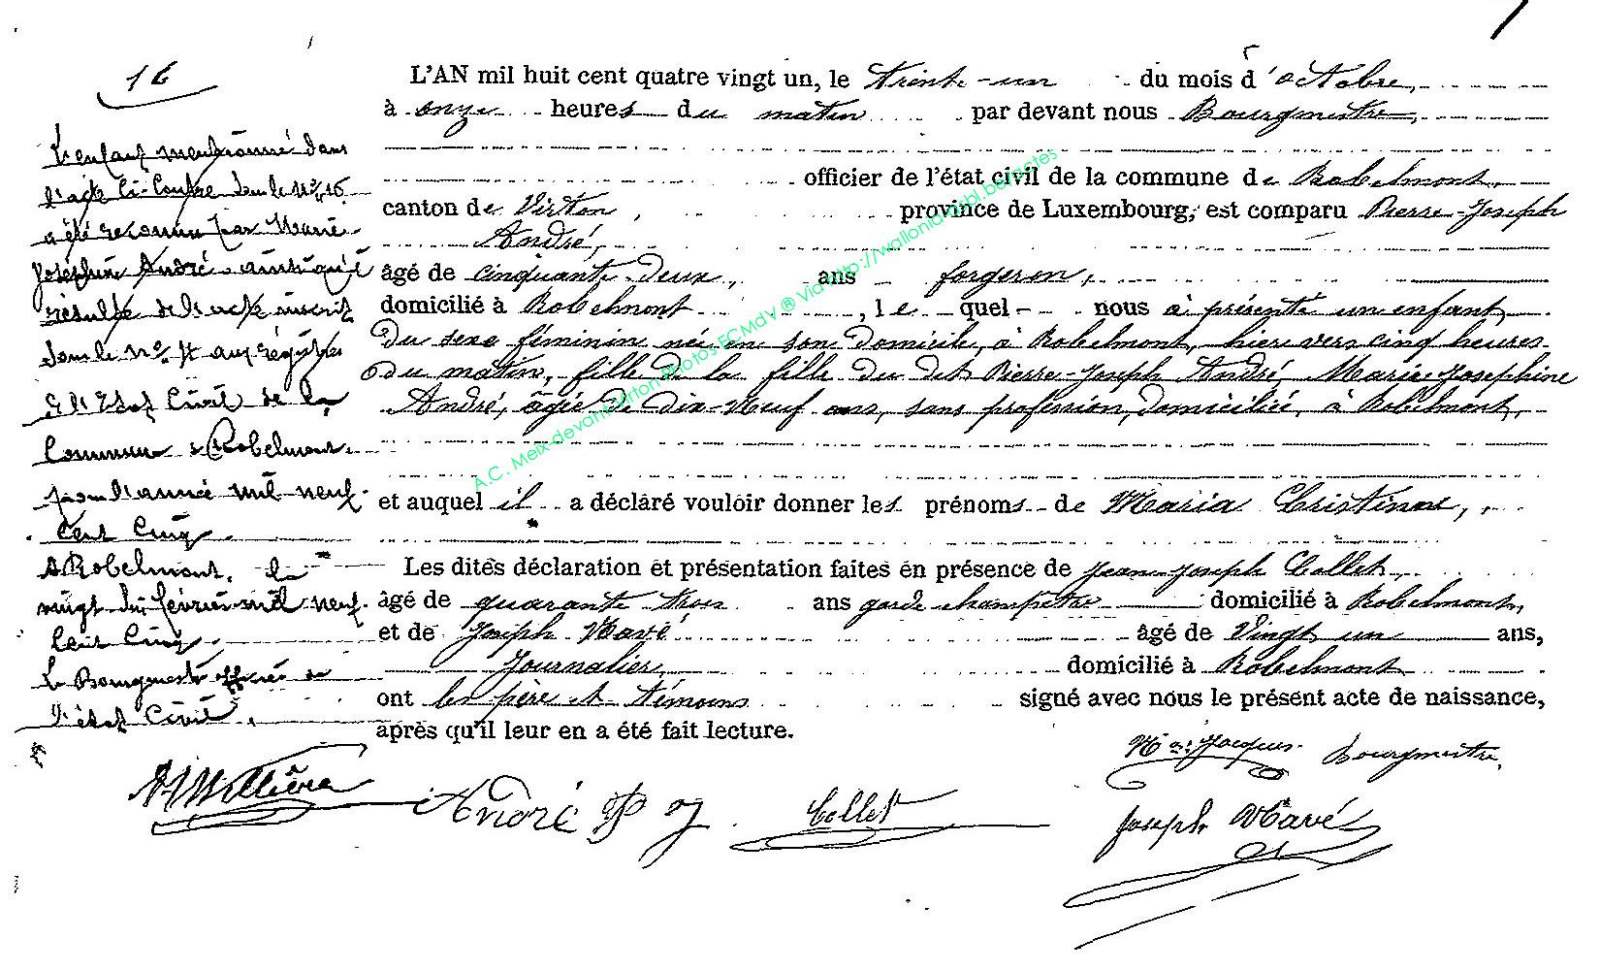 16
L'enfant mentionné dans
l'acte ci-contre sous le n° 16
a été reconnu par Marie-
Joséphine André ainsi qu'il
résulte de l'acte inscrit
sous le n° aux registres
de l'Etat Civil de la
Commune de Robelmont
pour l'année mil neuf
cent cinq.
A Robelmont, le
vingt février mil neuf
cent cinq.
Le Bourgmestre officier de
l'état Civil,
L'AN mil huit cent quatre vingt un, le trente-un du mois d'octobre,
à onze heures du matin par devant nous Bourgmestre,
officier de l'état civil de la commune de Robelmont,
canton de Virton, province de Luxembourg, est comparu Pierre-Joseph
André,
âgé de cinquante-deux, ans forgeron,
domicilié à Robelmont, lequel nous a présenté un enfant
du sexe féminin née en son domicile, à Robelmont, hier vers cinq heures
du matin, fille de la fille du dit Pierre-Joseph André, Marie-Josephine
André, âgée de dix-neuf ans, sans profession, domiciliée, à Robelmont,
et auquel il a déclaré vouloir donner les prénoms de Maria Cristinae,
Les dites déclaration et présentation faites en présence de Jean-Joseph Collet,
âgé de quarante trois ans garde champêtre domicilié à Robelmont,
et de Joseph Mavé âgé de Vingt un ans,
Journalier, domicilié à Robelmont
ont les père et témoins signé avec nous le présent acte de naissance,
après qu'il leur en a été fait lecture.
Jacques Bourgmestre,
André P J. Collet
Joseph Mavé
A.C. Meix-devant-Virton Photos ECMdV ® Via http://walloniaasbl.be/actes